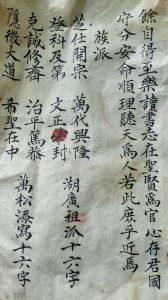 余自得至樂讀書志在聖賢為官心存君國
守分安命順理聽天為人若此庶乎近焉
族派
筮仕開宗 萬代興隆
登科及第 文正封
湖廣祖派十六字
克誠修齊 治平篤恭
隱微大道 希聖在中
萬松添寫十六字